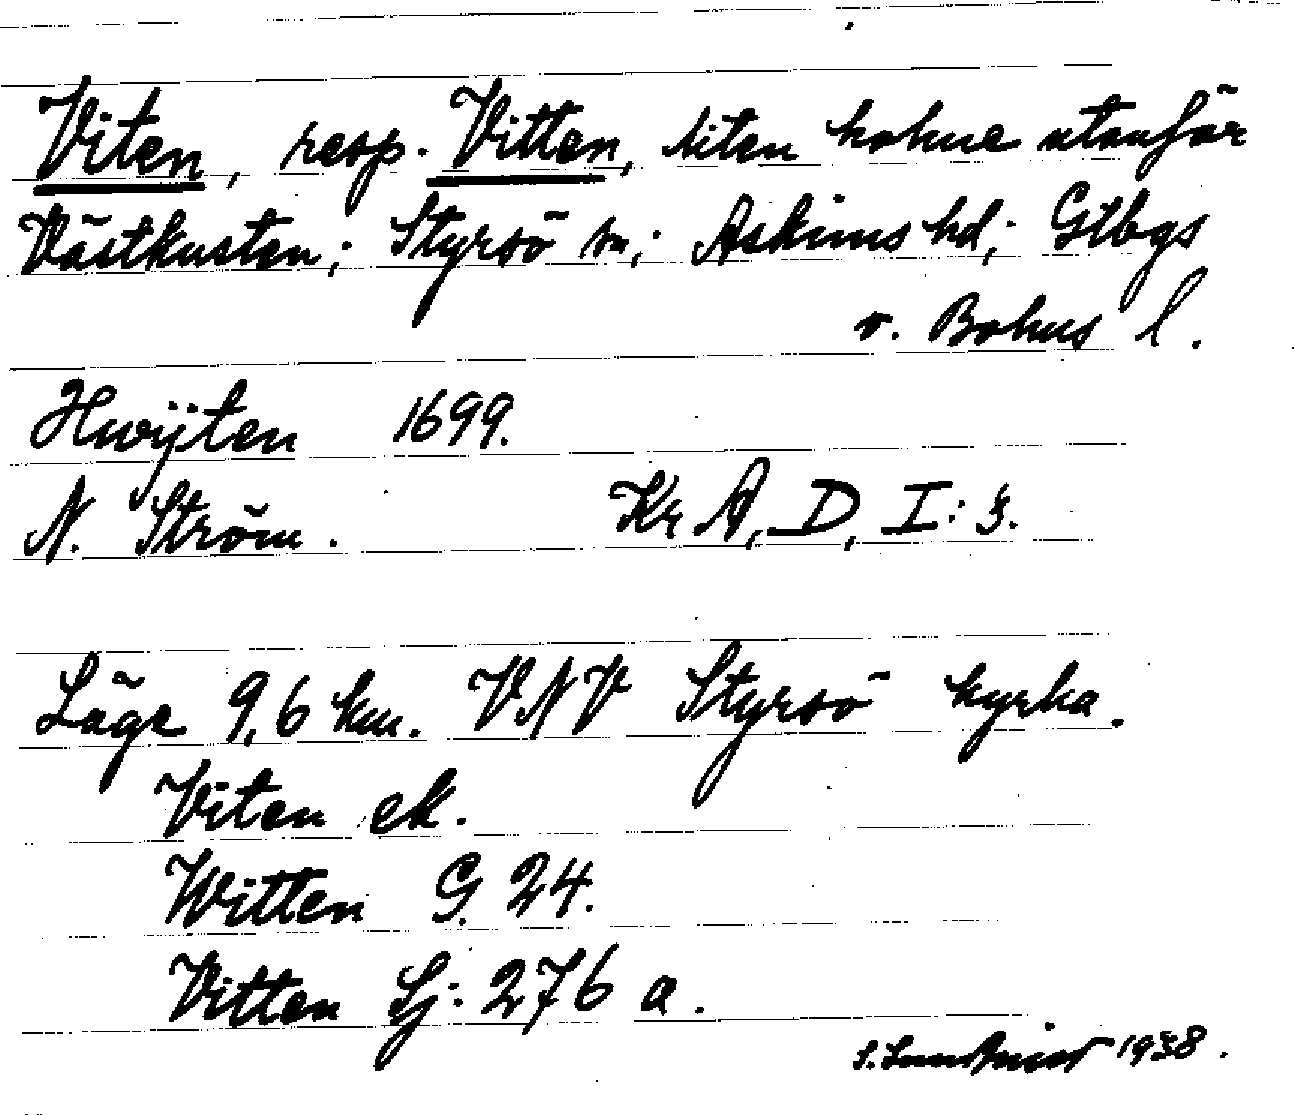 Viten, resp. Vitten, liten holme utanför
Västkusten; Styrsö sn; Askims hd; Gtbgs
o. Bohus l.
Hwijten 1699.
N. Ström. Kr A, D, I: 3.
Läge 9,6 km. VNV Styrsö kyrka.
Viten ek.
Witten G. 24.
Vitten Sj: 276 a.
1938.